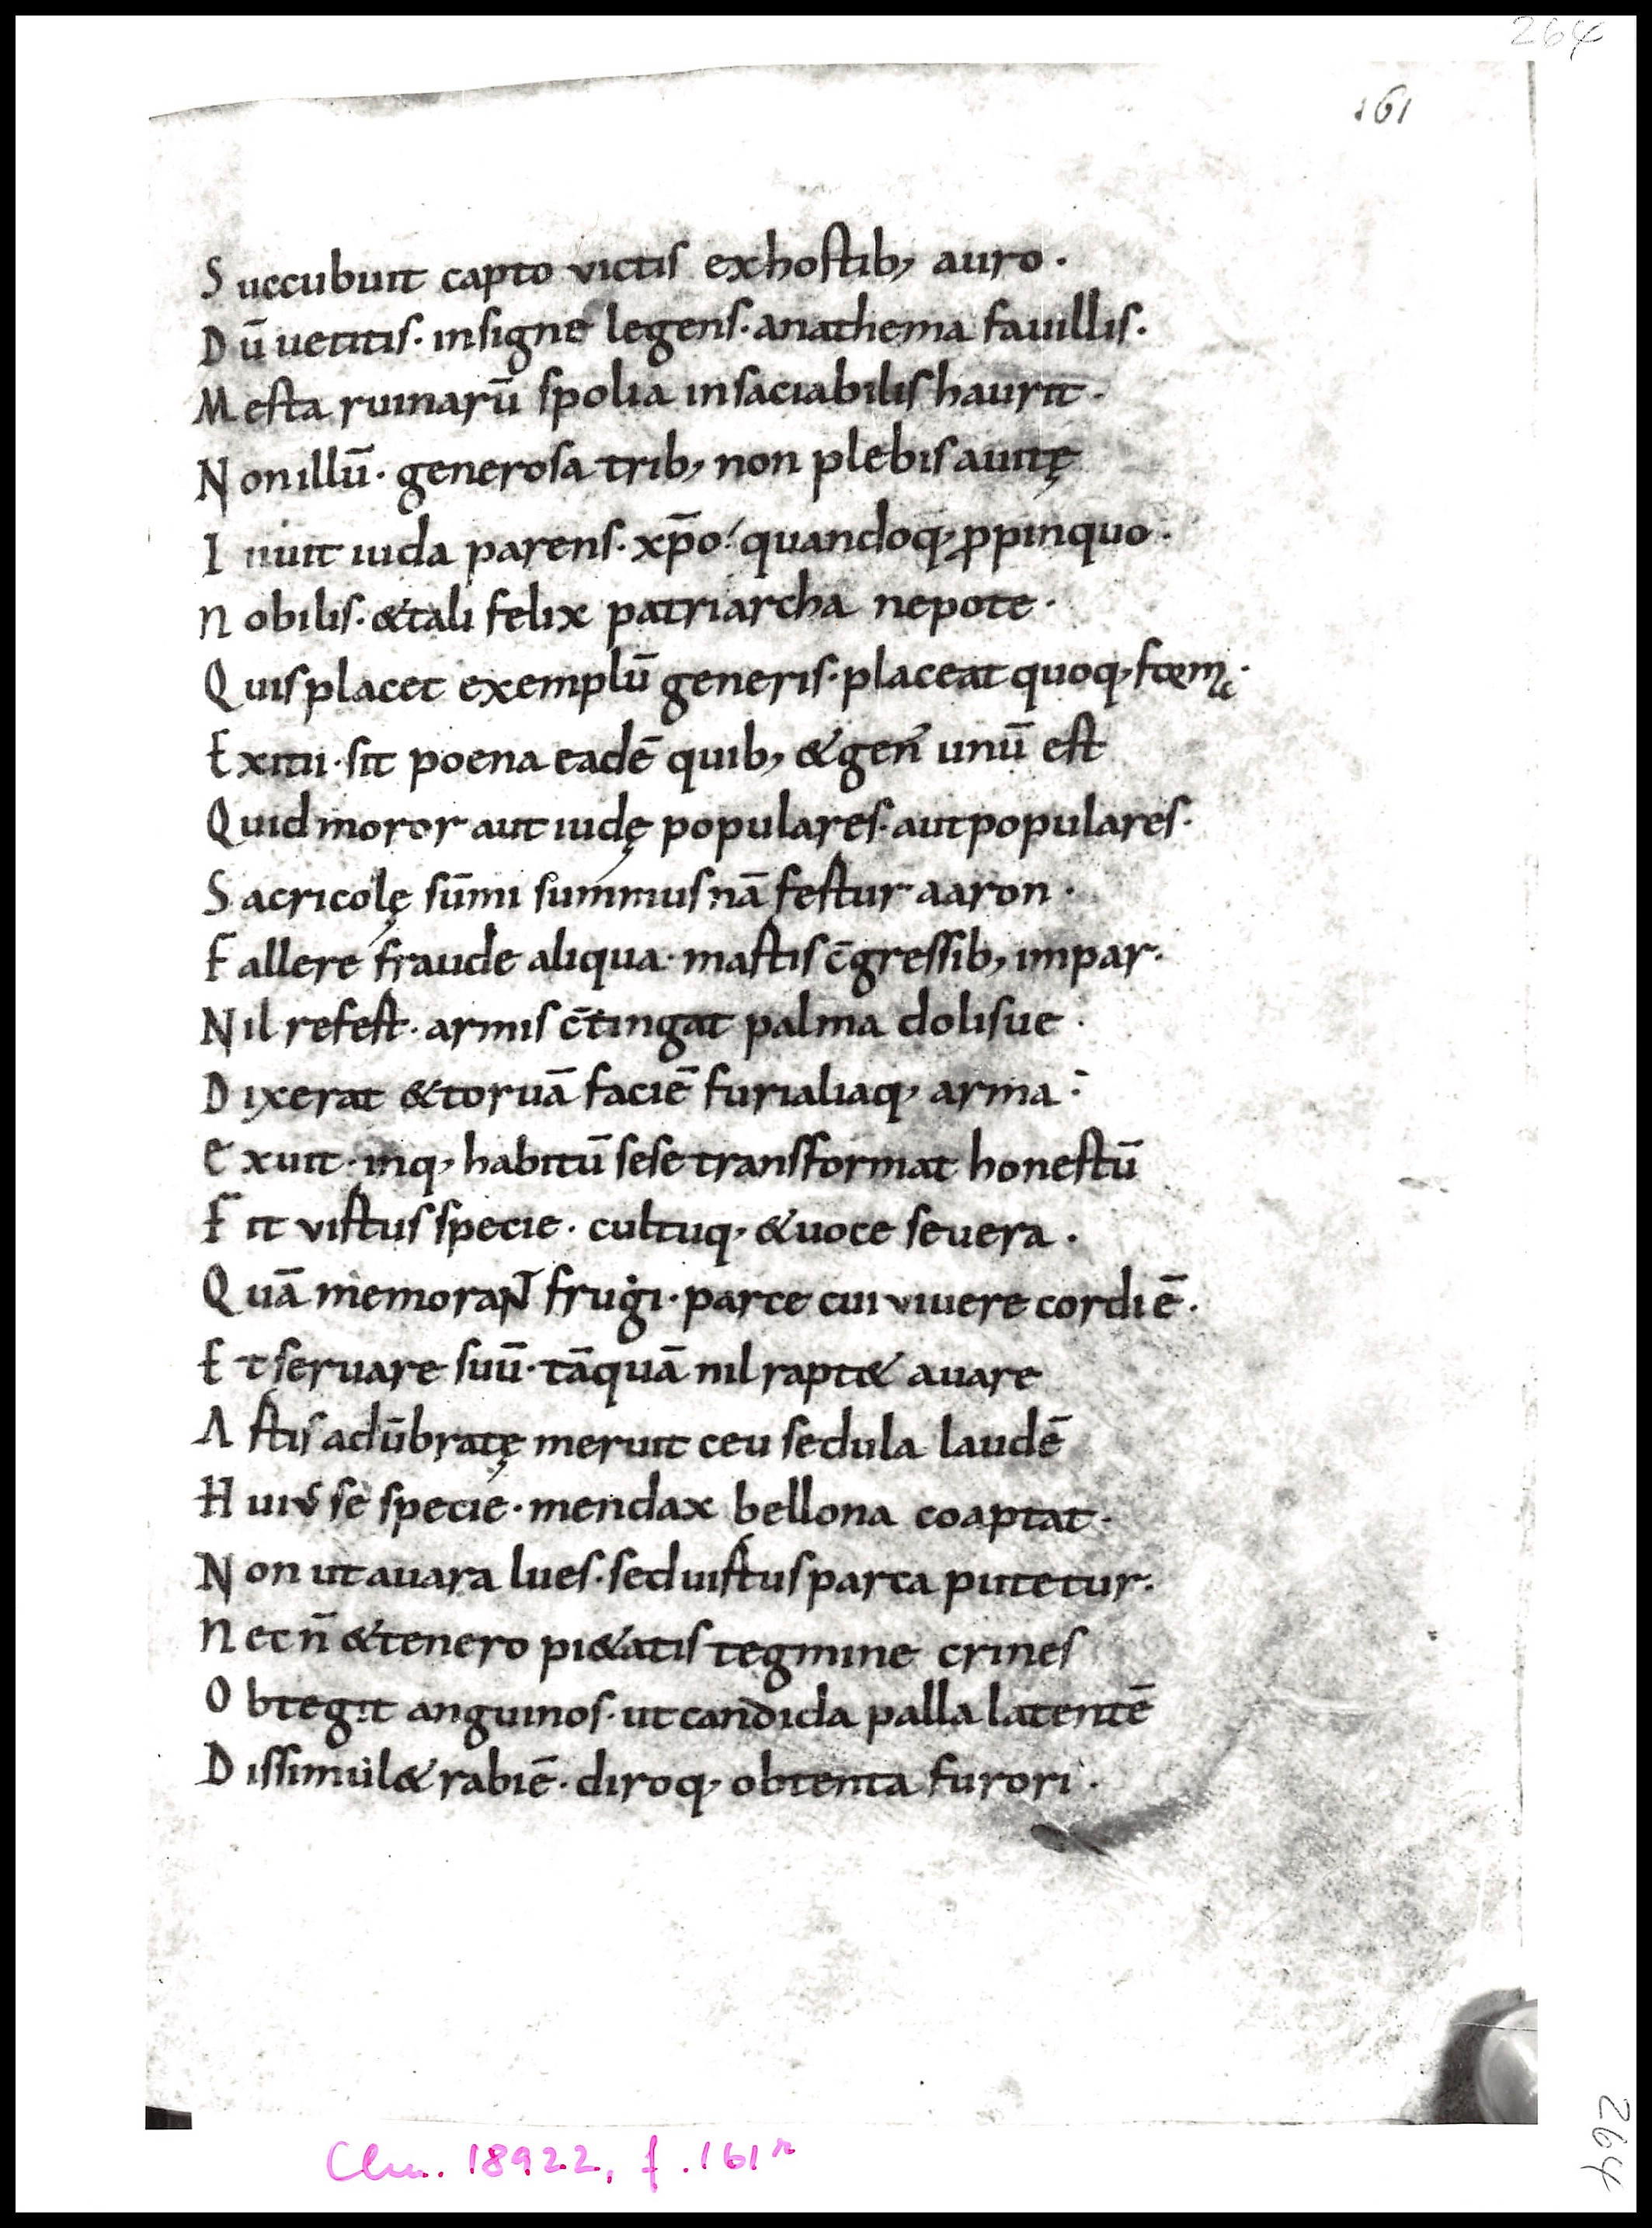 264
161
Succubuit capto victis exhostib; auro.
Dū uetitis. insigne legens. anathema fauillis.
Mesta ruinarū spolia insaciabilis haurit.
Non illū. generosa trib; non plebis auitę
Iuuit iuda parens. xp̄o quandoq; ꝓpinquo.
Nobilis. & tali felix patriarcha nepote.
Quis placet exemplū generis. placeat quoq;
Exitii. sit poena eadē quib; & gen̄ unū est
Quid moror aut iudę populares. aut populares.
Sacricolę sūmi summus nā fertur aaron.
Fallere fraude aliqua. martis c̄gressib; impar.
Nil refert. armis c̄tingat palma dolisue.
Dixerat & toruā faciē furialiaq; arma.
Exuit. inq; habitū sese transformat honestū
Fit virtus specie. cultuq; & uoce seuera.
Quā memorant frugi. parce cui viuere cordi ē.
Et seruare suū. tāquā nil rapt& auare
Artis adūbratę meruit ceu sedula laudē
Huius se specie. mendax bellona coaptat.
Non ut auara lues. sed uirtus parca putetur.
Nec n̄ & tenero pi&atis tegmine crines
Obtegit anguinos. ut candida palla latentē
Dissimul& rabiē. diroq; obtenta furori.
Clm. 18922, f. 161r
264